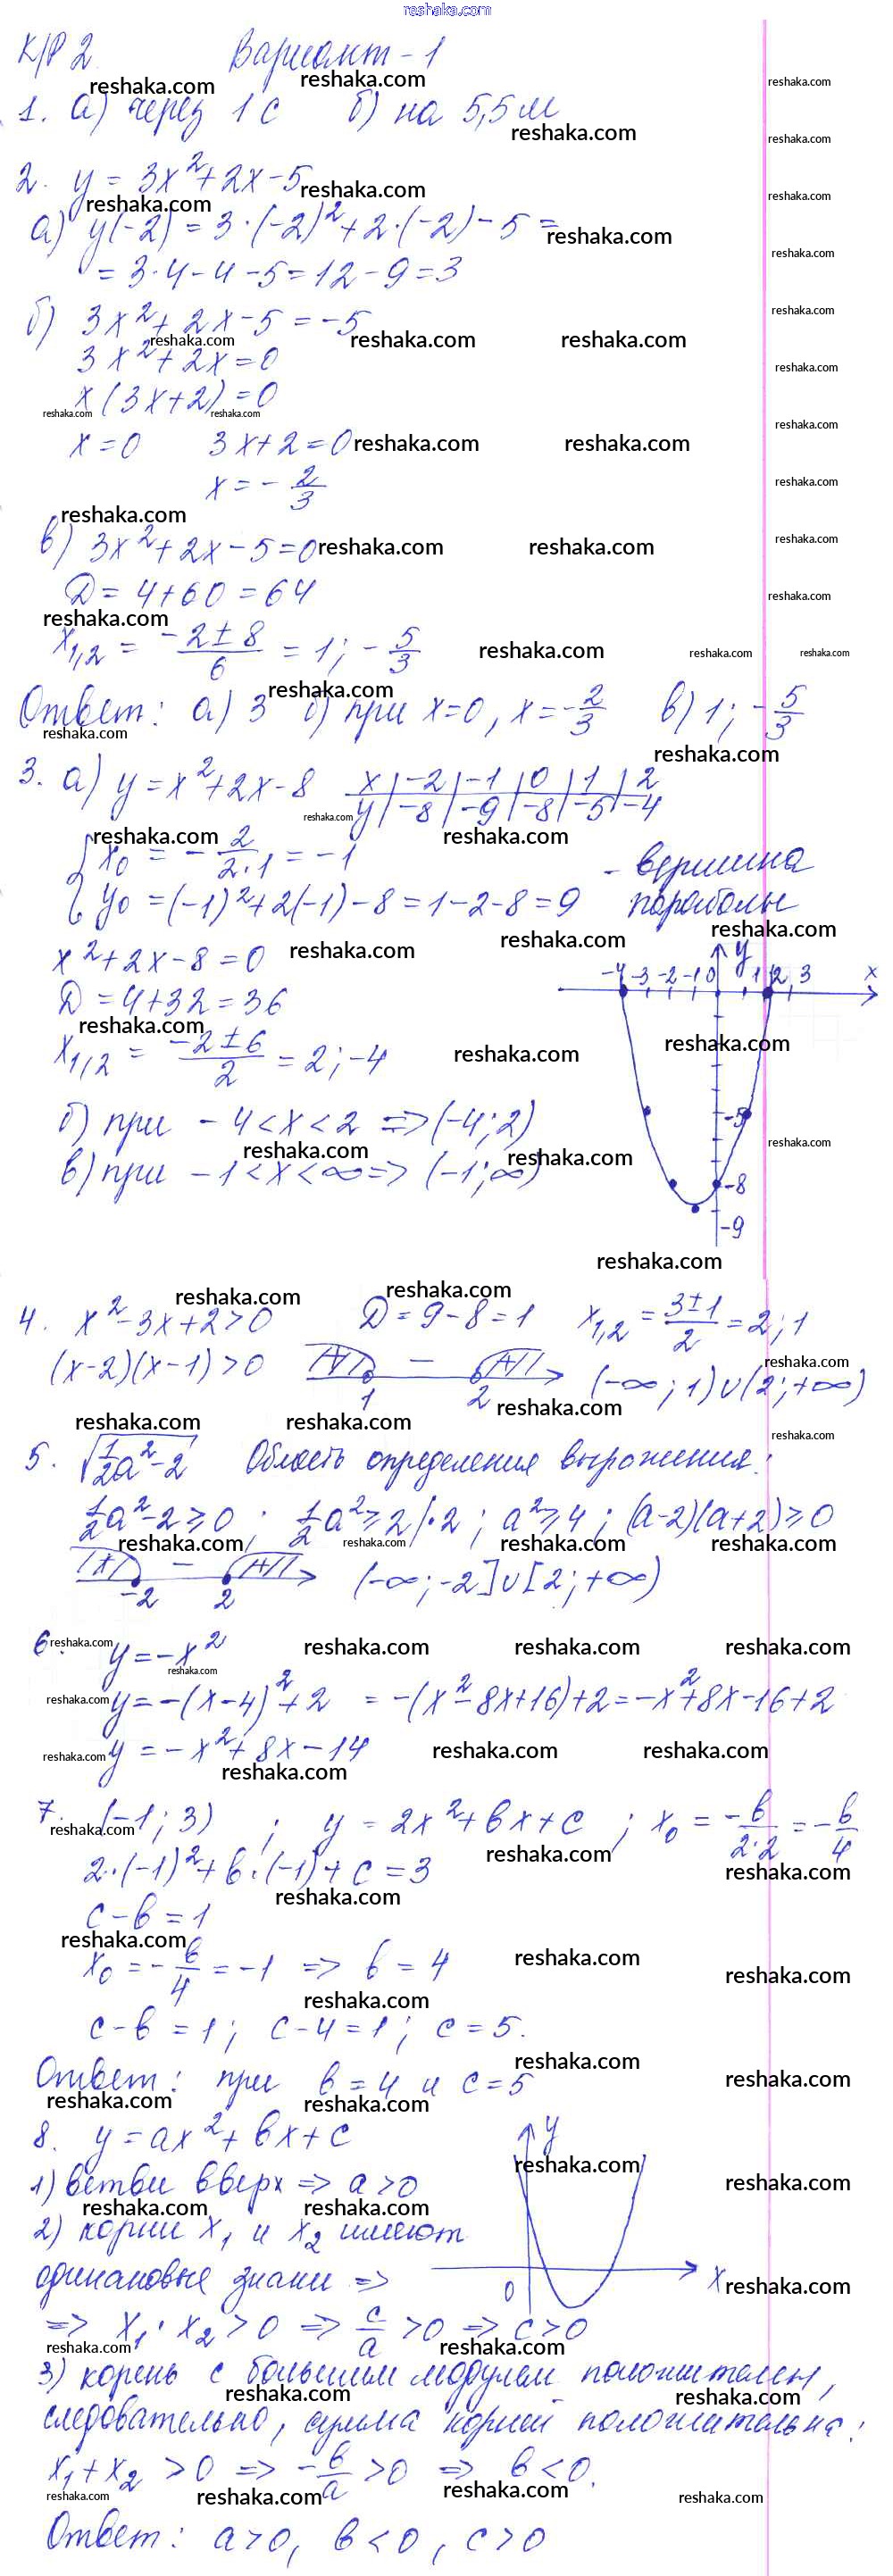 reshaka.com
К/Р 2. Вариант - 1
1. а) через 1 с б) на 5,5 м
2. y = 3x² + 2x - 5
а) y(-2) = 3·(-2)² + 2·(-2) - 5 =
= 3·4 - 4 - 5 = 12 - 9 = 3
б) 3x² + 2x - 5 = -5
3x² + 2x = 0
x(3x + 2) = 0
x = 0 3x + 2 = 0
x = - 2/3
в) 3x² + 2x - 5 = 0
D = 4 + 60 = 64
x₁,₂ = (-2 ± 8)/6 = 1; - 5/3
Ответ: а) 3 б) при x = 0, x = - 2/3 в) 1; - 5/3
3. а) y = x² + 2x - 8
x | -2 | -1 | 0 | 1 | 2
y | -8 | -9 | -8 | -5 | -4
{ x₀ = - 2/(2·1) = -1
{ y₀ = (-1)² + 2(-1) - 8 = 1 - 2 - 8 = 9 - вершина параболы
x² + 2x - 8 = 0
D = 4 + 32 = 36
x₁,₂ = (-2 ± 6)/2 = 2; -4
y
-4 -3 -2 -1 0 1 2 3 x
-5
-8
-9
б) при -4 < x < 2 => (-4; 2)
в) при -1 < x < ∞ => (-1; ∞)
4. x² - 3x + 2 > 0 D = 9 - 8 = 1 x₁,₂ = (3 ± 1)/2 = 2; 1
(x - 2)(x - 1) > 0 + 1 - 2 + (-∞; 1) ∪ (2; +∞)
5. √(1/2 a² - 2) Область определения выражения:
1/2 a² - 2 ≥ 0; 1/2 a² ≥ 2 |·2; a² ≥ 4; (a - 2)(a + 2) ≥ 0
+ -2 - 2 + (-∞; -2] ∪ [2; +∞)
6. y = -x²
y = -(x - 4)² + 2 = -(x² - 8x + 16) + 2 = -x² + 8x - 16 + 2
y = -x² + 8x - 14
7. (-1; 3) ; y = 2x² + bx + c ; x₀ = -b/(2·2) = - b/4
2·(-1)² + b·(-1) + c = 3
c - b = 1
x₀ = - b/4 = -1 => b = 4
c - b = 1; c - 4 = 1; c = 5.
Ответ: при b = 4 и c = 5
8. y = ax² + bx + c
y
0 x
1) ветви вверх => a > 0
2) корни x₁ и x₂ имеют
одинаковые знаки =>
=> x₁·x₂ > 0 => c/a > 0 => c > 0
3) корень с большим модулем положителен,
следовательно, сумма корней положительна:
x₁ + x₂ > 0 => - b/a > 0 => b < 0.
Ответ: a > 0, b < 0, c > 0